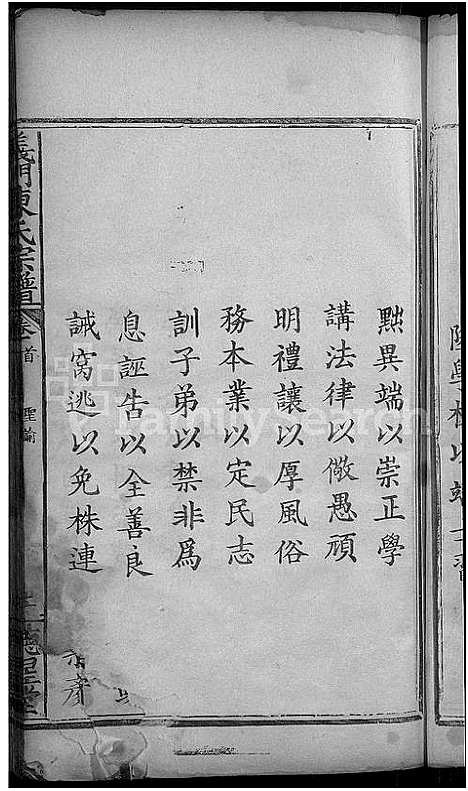 黜異端以崇正學
講法律以儆愚頑
明禮讓以厚風俗
務本業以定民志
訓子弟以禁非爲
息誣告以全善良
誡窩逃以免株連
義門陳氏宗譜
卷首
聖諭
FamilySearch